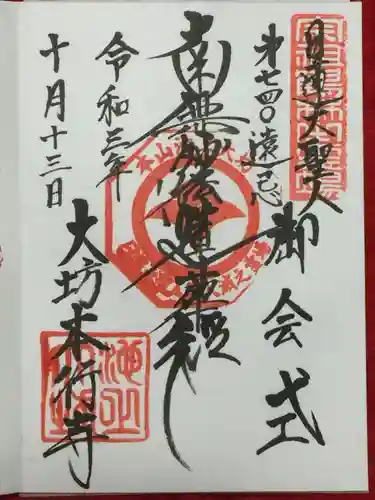 日蓮大聖人
御会式
第七四〇遠忌
南無妙法蓮華経
令和三年
十月十三日
大坊本行寺